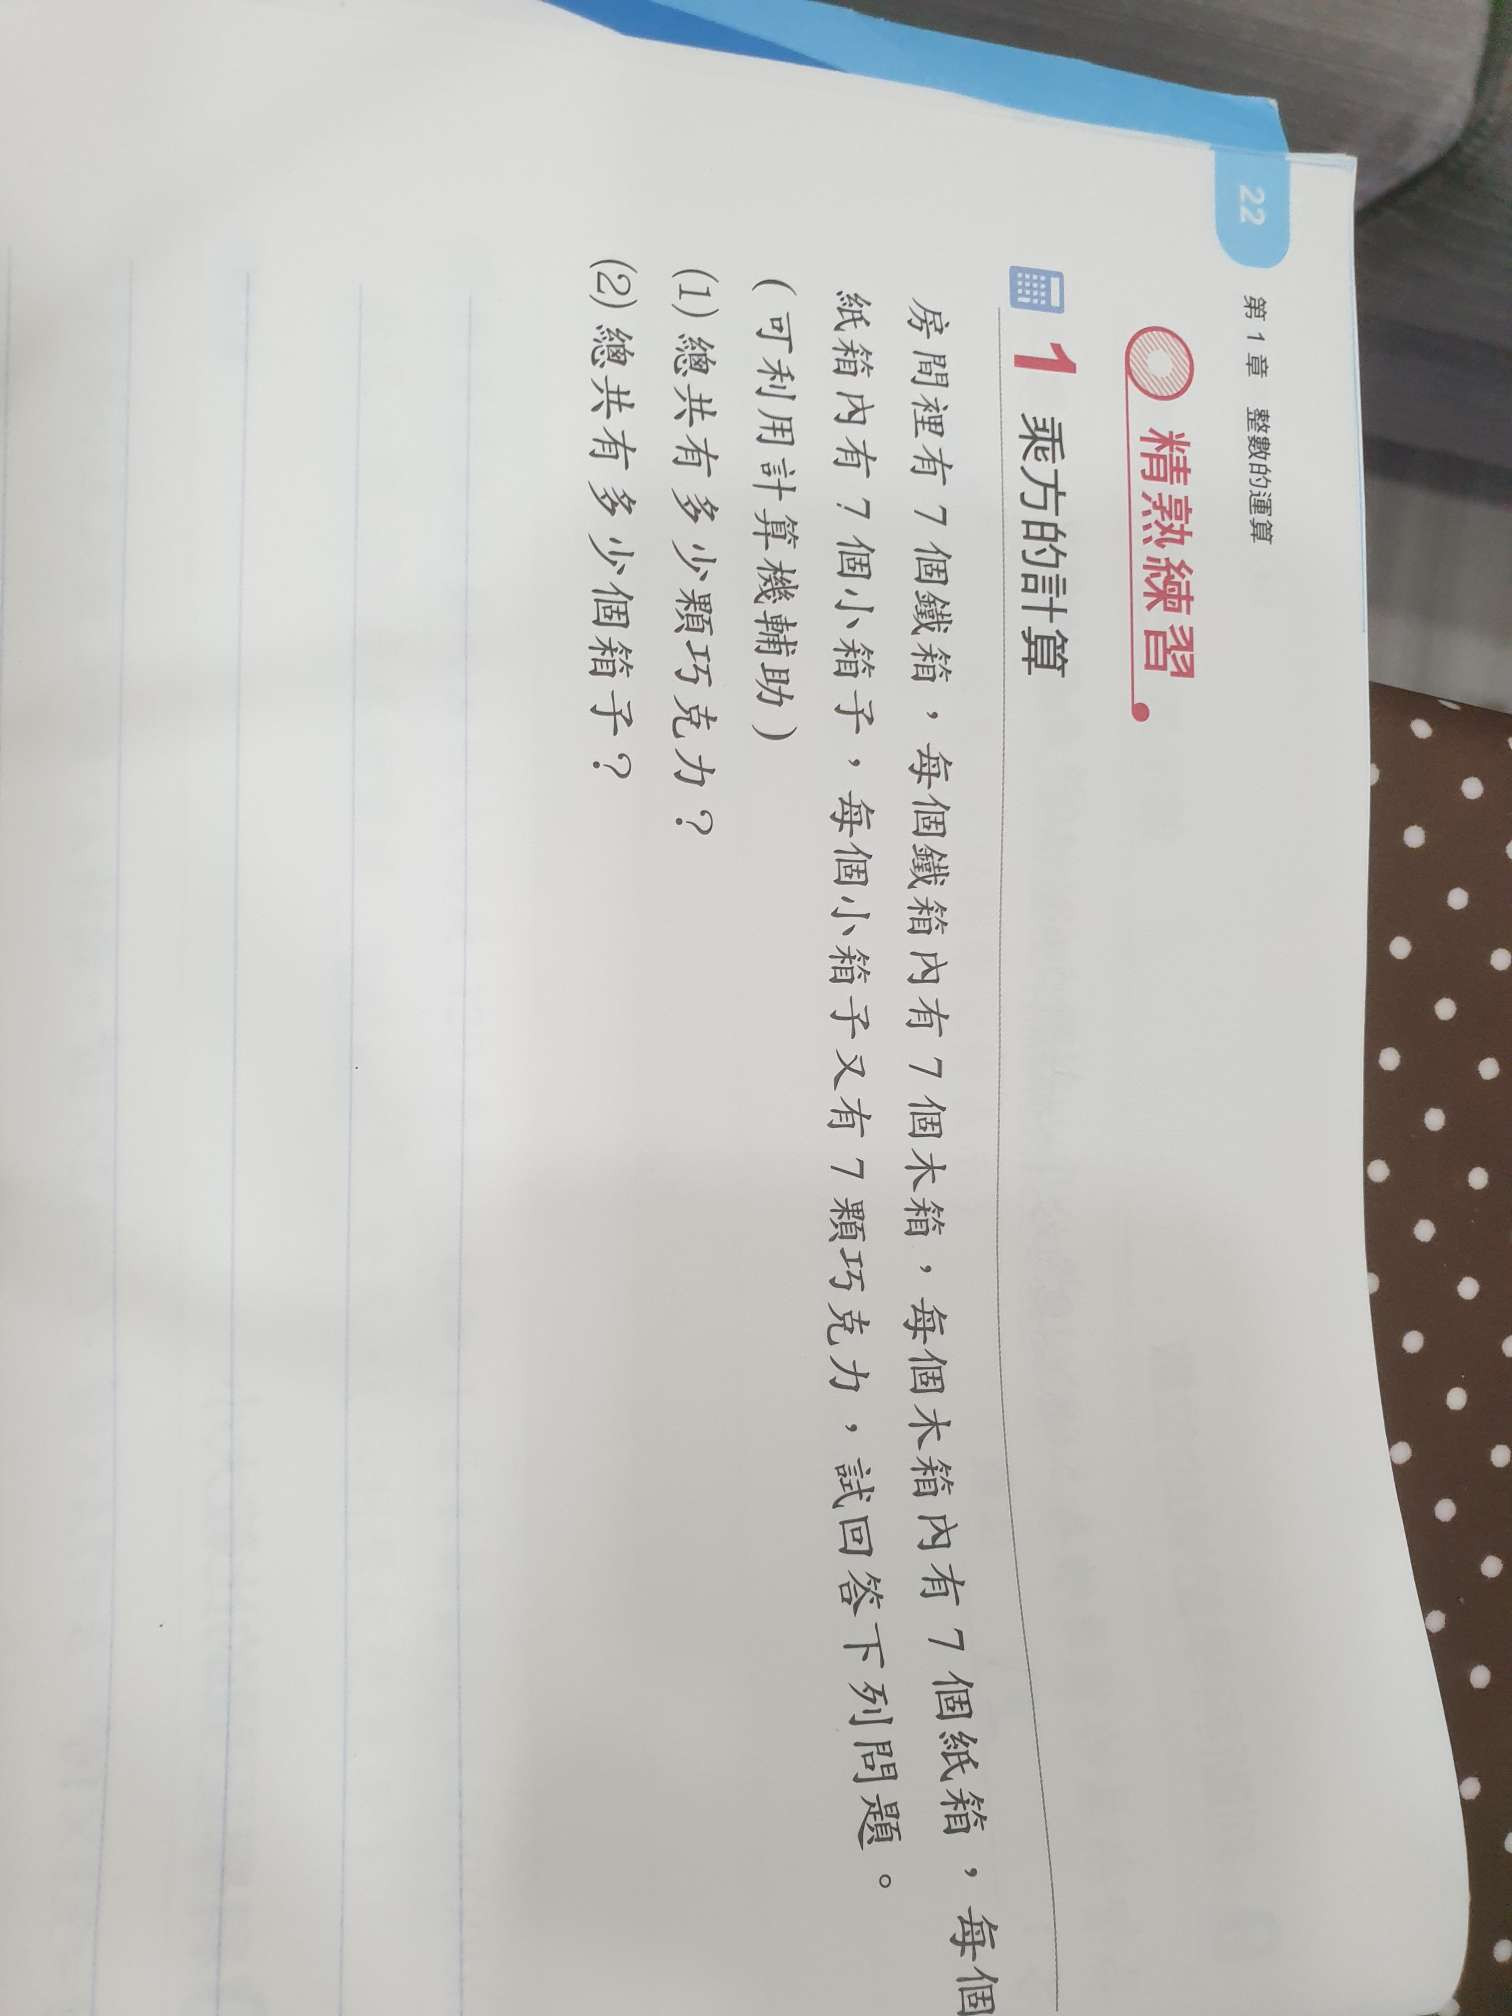 22
第 1 章 整數的運算
精熟練習
1 乘方的計算
房間裡有 7 個鐵箱，每個鐵箱內有 7 個木箱，每個木箱內有 7 個紙箱，每個
紙箱內有 7 個小箱子，每個小箱子又有 7 顆巧克力，試回答下列問題。
（可利用計算機輔助）
(1) 總共有多少顆巧克力？
(2) 總共有多少個箱子？